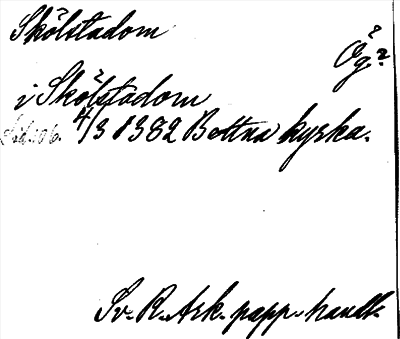 Skölstadom
Ög.?
i Skölstadom
4/3 1382 Bettna kyrka.
Sv. R. Ark. papp. handl.